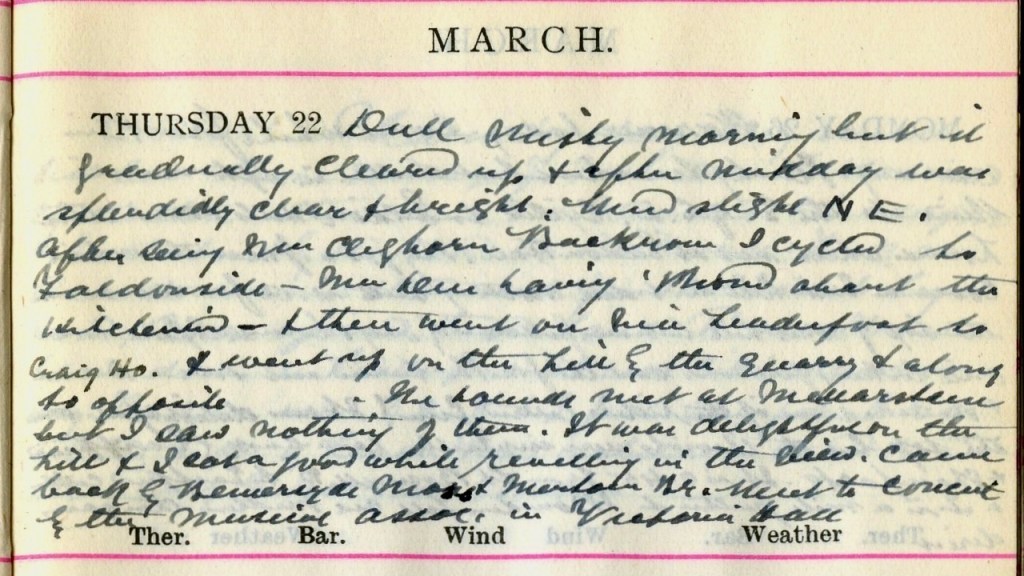 MARCH.
THURSDAY 22 Dull misty morning but it
gradually cleared up & after midday was
splendidly clear & bright. Wind slight N E.
After seeing Mr Cleghorn I cycled to
Faldonside – having about the
– & then went on via Leaderfoot to
Craig Ho. & went up on the hill by the Quarry & along
to opposite . The hounds met at Mellerstain
but I saw nothing of them. It was delightful on the
hill & I sat a good while revelling in the view. Came
back by Bemersyde Moss & Mertoun Br. Went to Concert
by the Musical Assoc. in Victoria Hall
Ther. Bar. Wind Weather